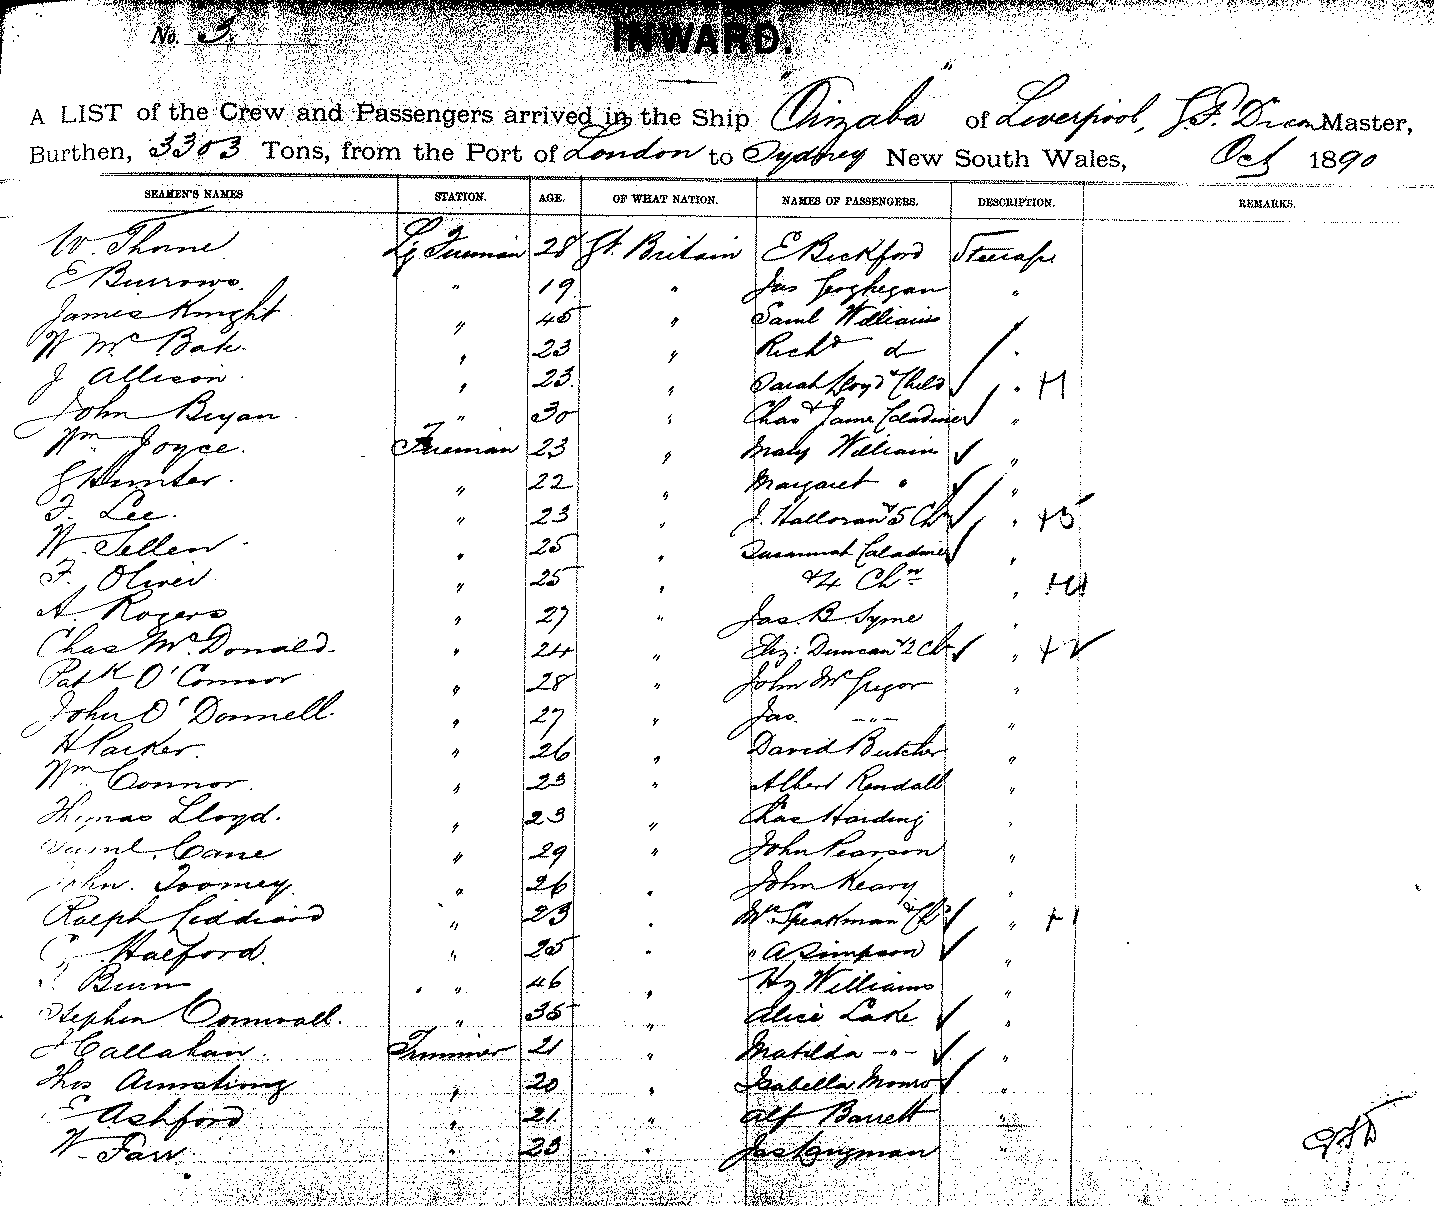 No. 3.
INWARD.
A LIST of the Crew and Passengers arrived in the Ship "Orizaba" of Liverpool, Master,
Burthen, 3303 Tons, from the Port of London to Sydney New South Wales, Oct 1890
SEAMEN'S NAMES STATION. AGE. OF WHAT NATION. NAMES OF PASSENGERS. DESCRIPTION. REMARKS.
W. Thorne Lg Fireman 28 Gt. Britain E Bickford Steerage
E Burrows. " 19 " Jas Geoghegan "
James Knight " 45 " Saml Williams "
W Mc 23 " Richd do "
J Allison " 23. " Sarah Lloyd & Child " +1
John Bryan " 30 " Chas & Jame "
Wm Joyce. Fireman 23 " Mary William "
G Hunter. " 22 " Margaret " "
F. Lee. " 23 " J. Halloran & 5 Chn " +5
W. Sellen " 25 " Susannah "
F. Oliver " 25 " & 4 Chn " +4
A. Rogers " 27 " Jas. B Syme "
Chas McDonald " 24 " Eliz: Duncan & 2 Chn " +2
Patk O'Connor " 28 " John McGregor "
John O'Donnell. " 27 " Jas. -"- "
H Parker. " 26 " David Butcher "
Wm Connor. " 23 " Albert Rendall "
Thomas Lloyd. " 23 " Chas Harding "
Saml. Cane " 29 " John Pearson "
John. Toomey. " 26 " John Keary "
Ralph Liddiard " 23 " Mrs Speakman & Chd " +1
Halford. " 25 " " A Simpson "
Burn " 46 " Hy Williams "
Stephen Cornwall. " 35 " Alice Lake "
J Callahan. Trimmer 21 " Matilda -"- "
Thos Armstrong " 20 " Isabella Monro "
E Ashford " 21. " Alf Barrett "
W. Farr. " 23 " Jas Longman "